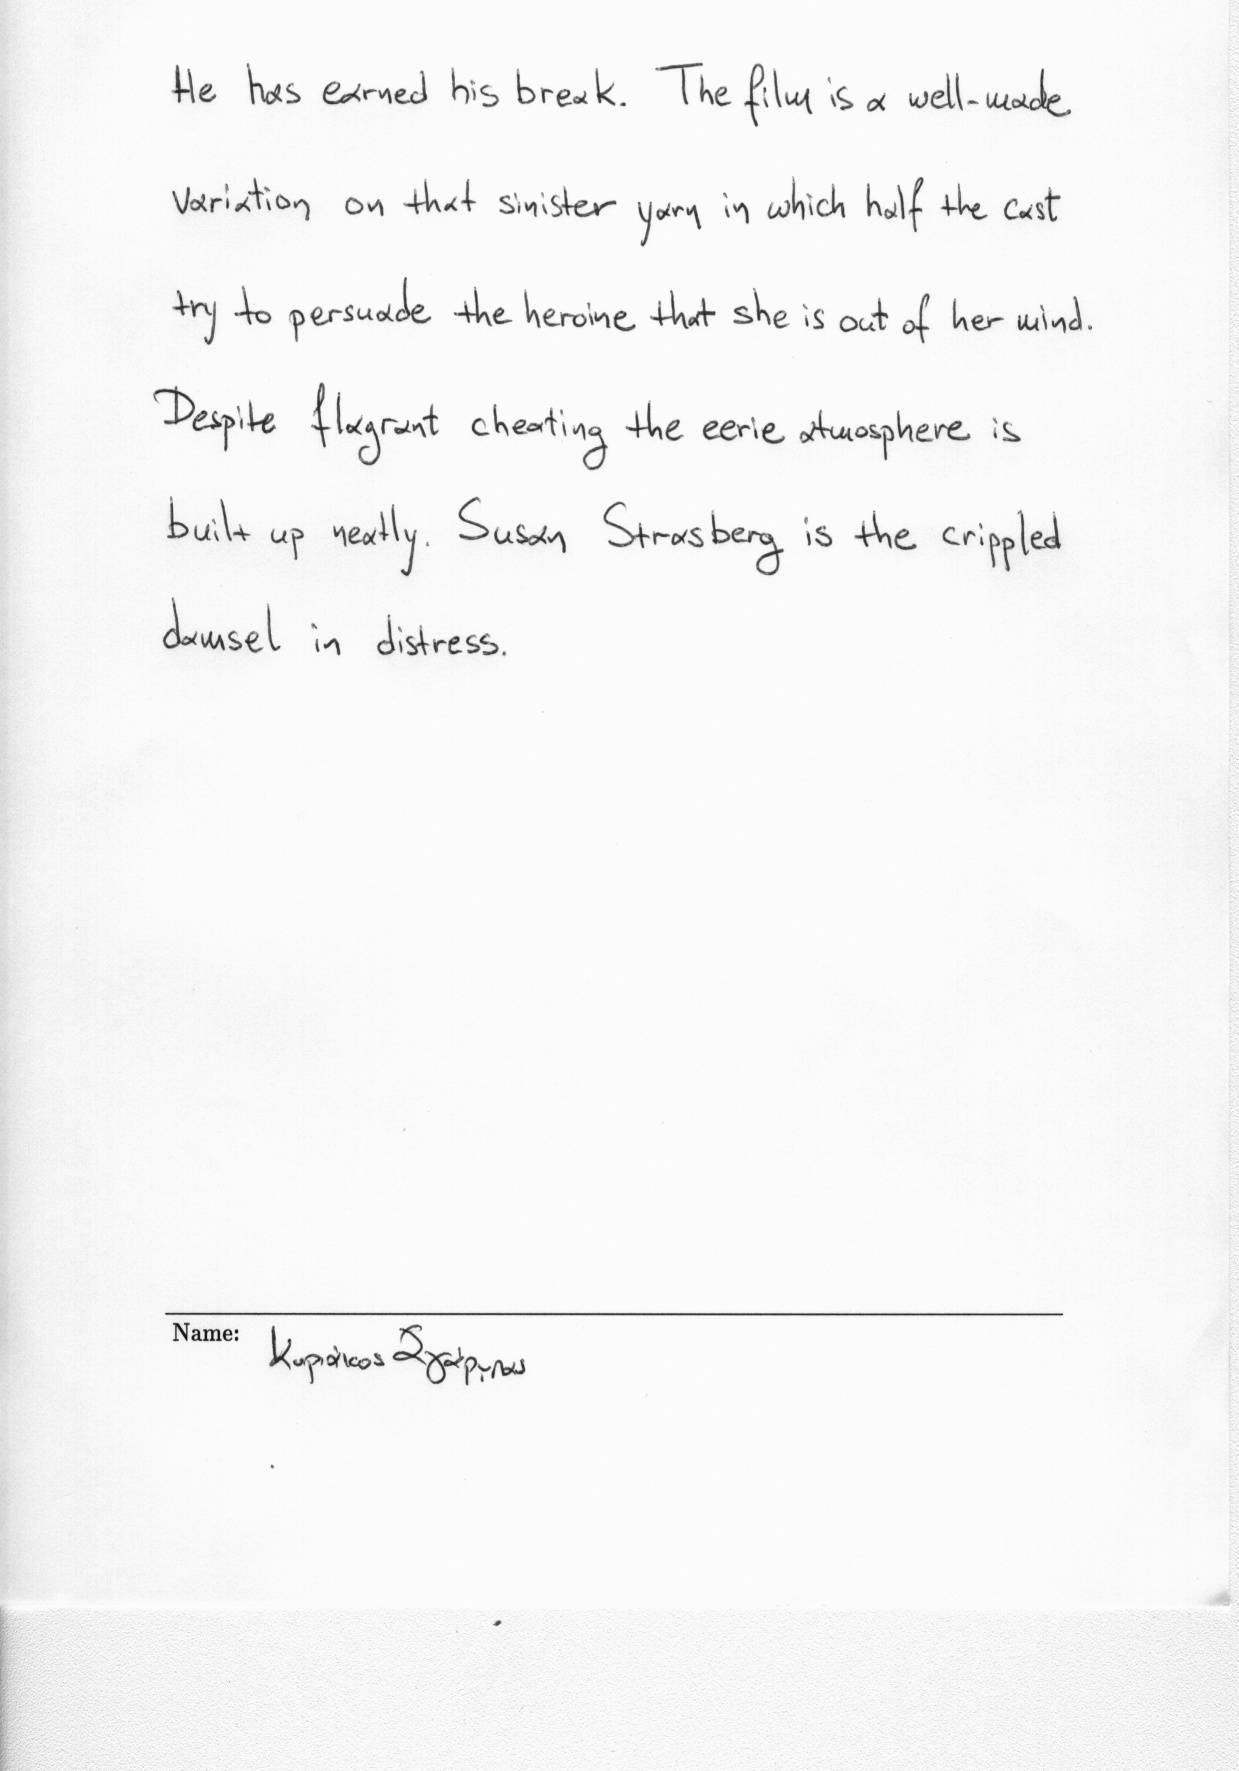 He has earned his break. The film is a well-made
variation on that sinister yarn in which half the cast
try to persuade the heroine that she is out of her mind.
Despite flagrant cheating the eerie atmosphere is
built up neatly. Susan Strasberg is the crippled
damsel in distress.
Name: